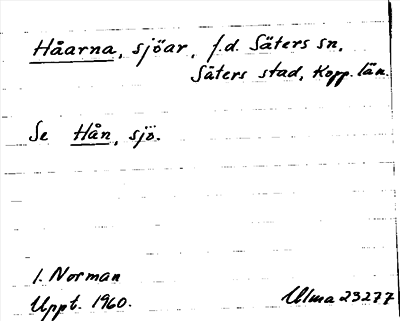 Håarna, sjöar, f.d. Säters sn,
Säters stad, Kopp. län.
Se Hån, sjö.
I. Norman
Uppt. 1960.
Ulma 23277